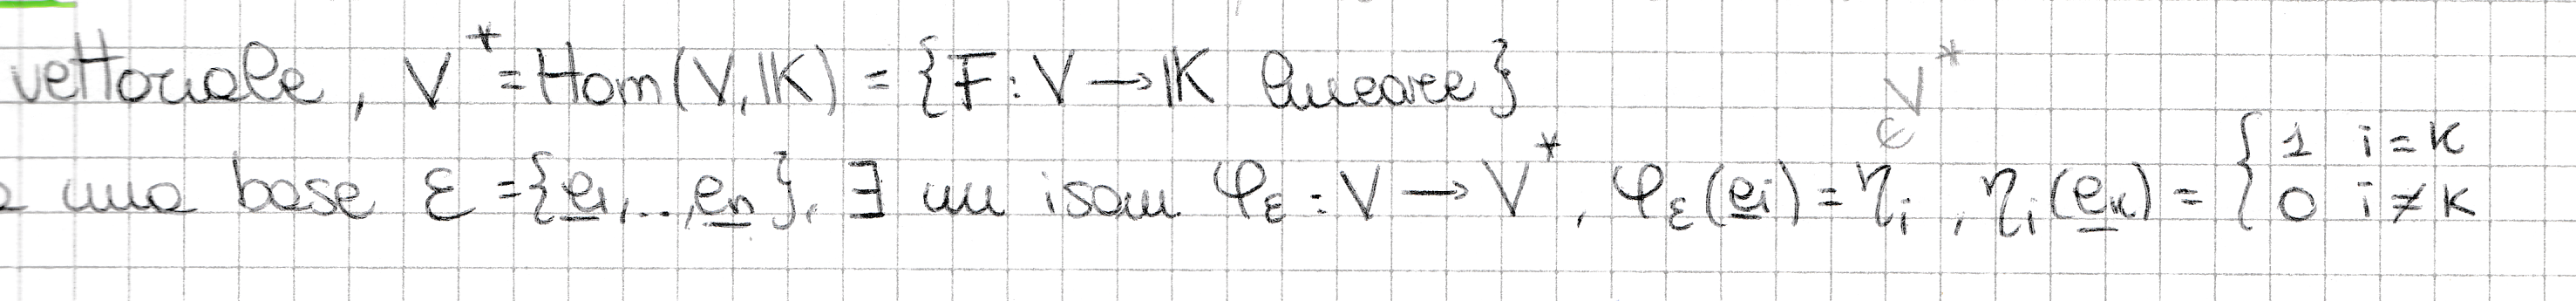 vettoriale, V* = Hom(V, 𝕂) = {F: V → 𝕂 lineare}
V*
∈
una base ε = {e₁, .., eₙ}, ∃ un isom. φ_ε : V → V*, φ_ε(eᵢ) = ηᵢ, ηᵢ(eₖ) = { 1 i = k
0 i ≠ k